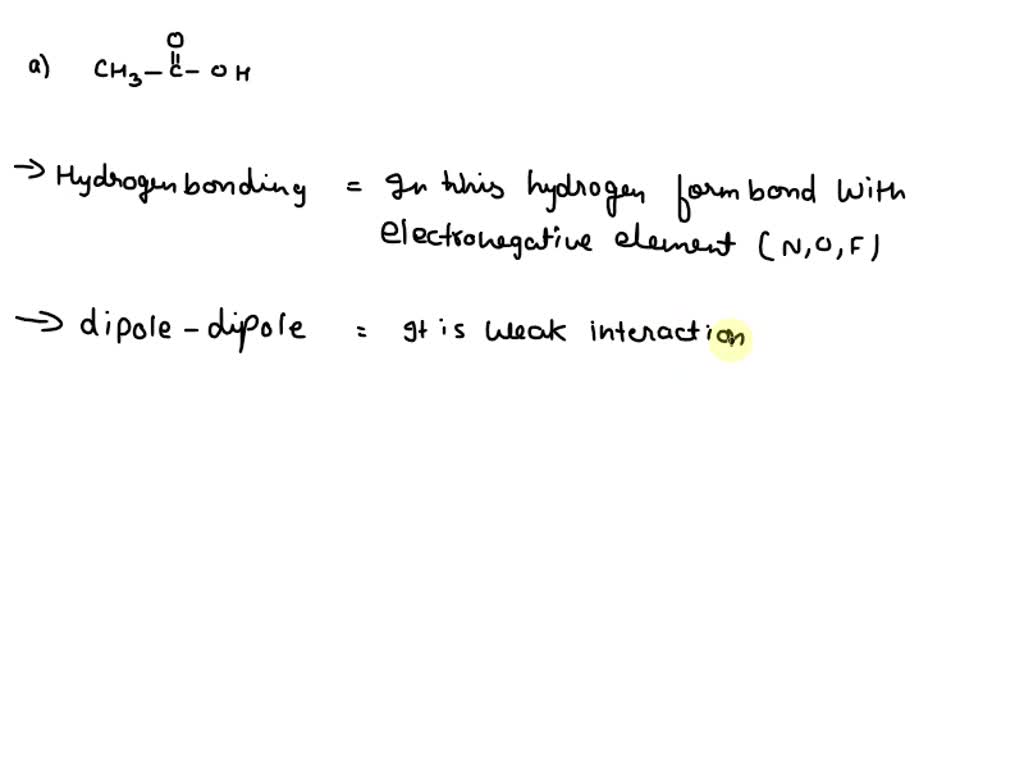 O
a) CH3 – C – OH
→ Hydrogen bonding = In this hydrogen form bond with
electronegative element (N,O,F)
→ dipole – dipole = It is weak interaction